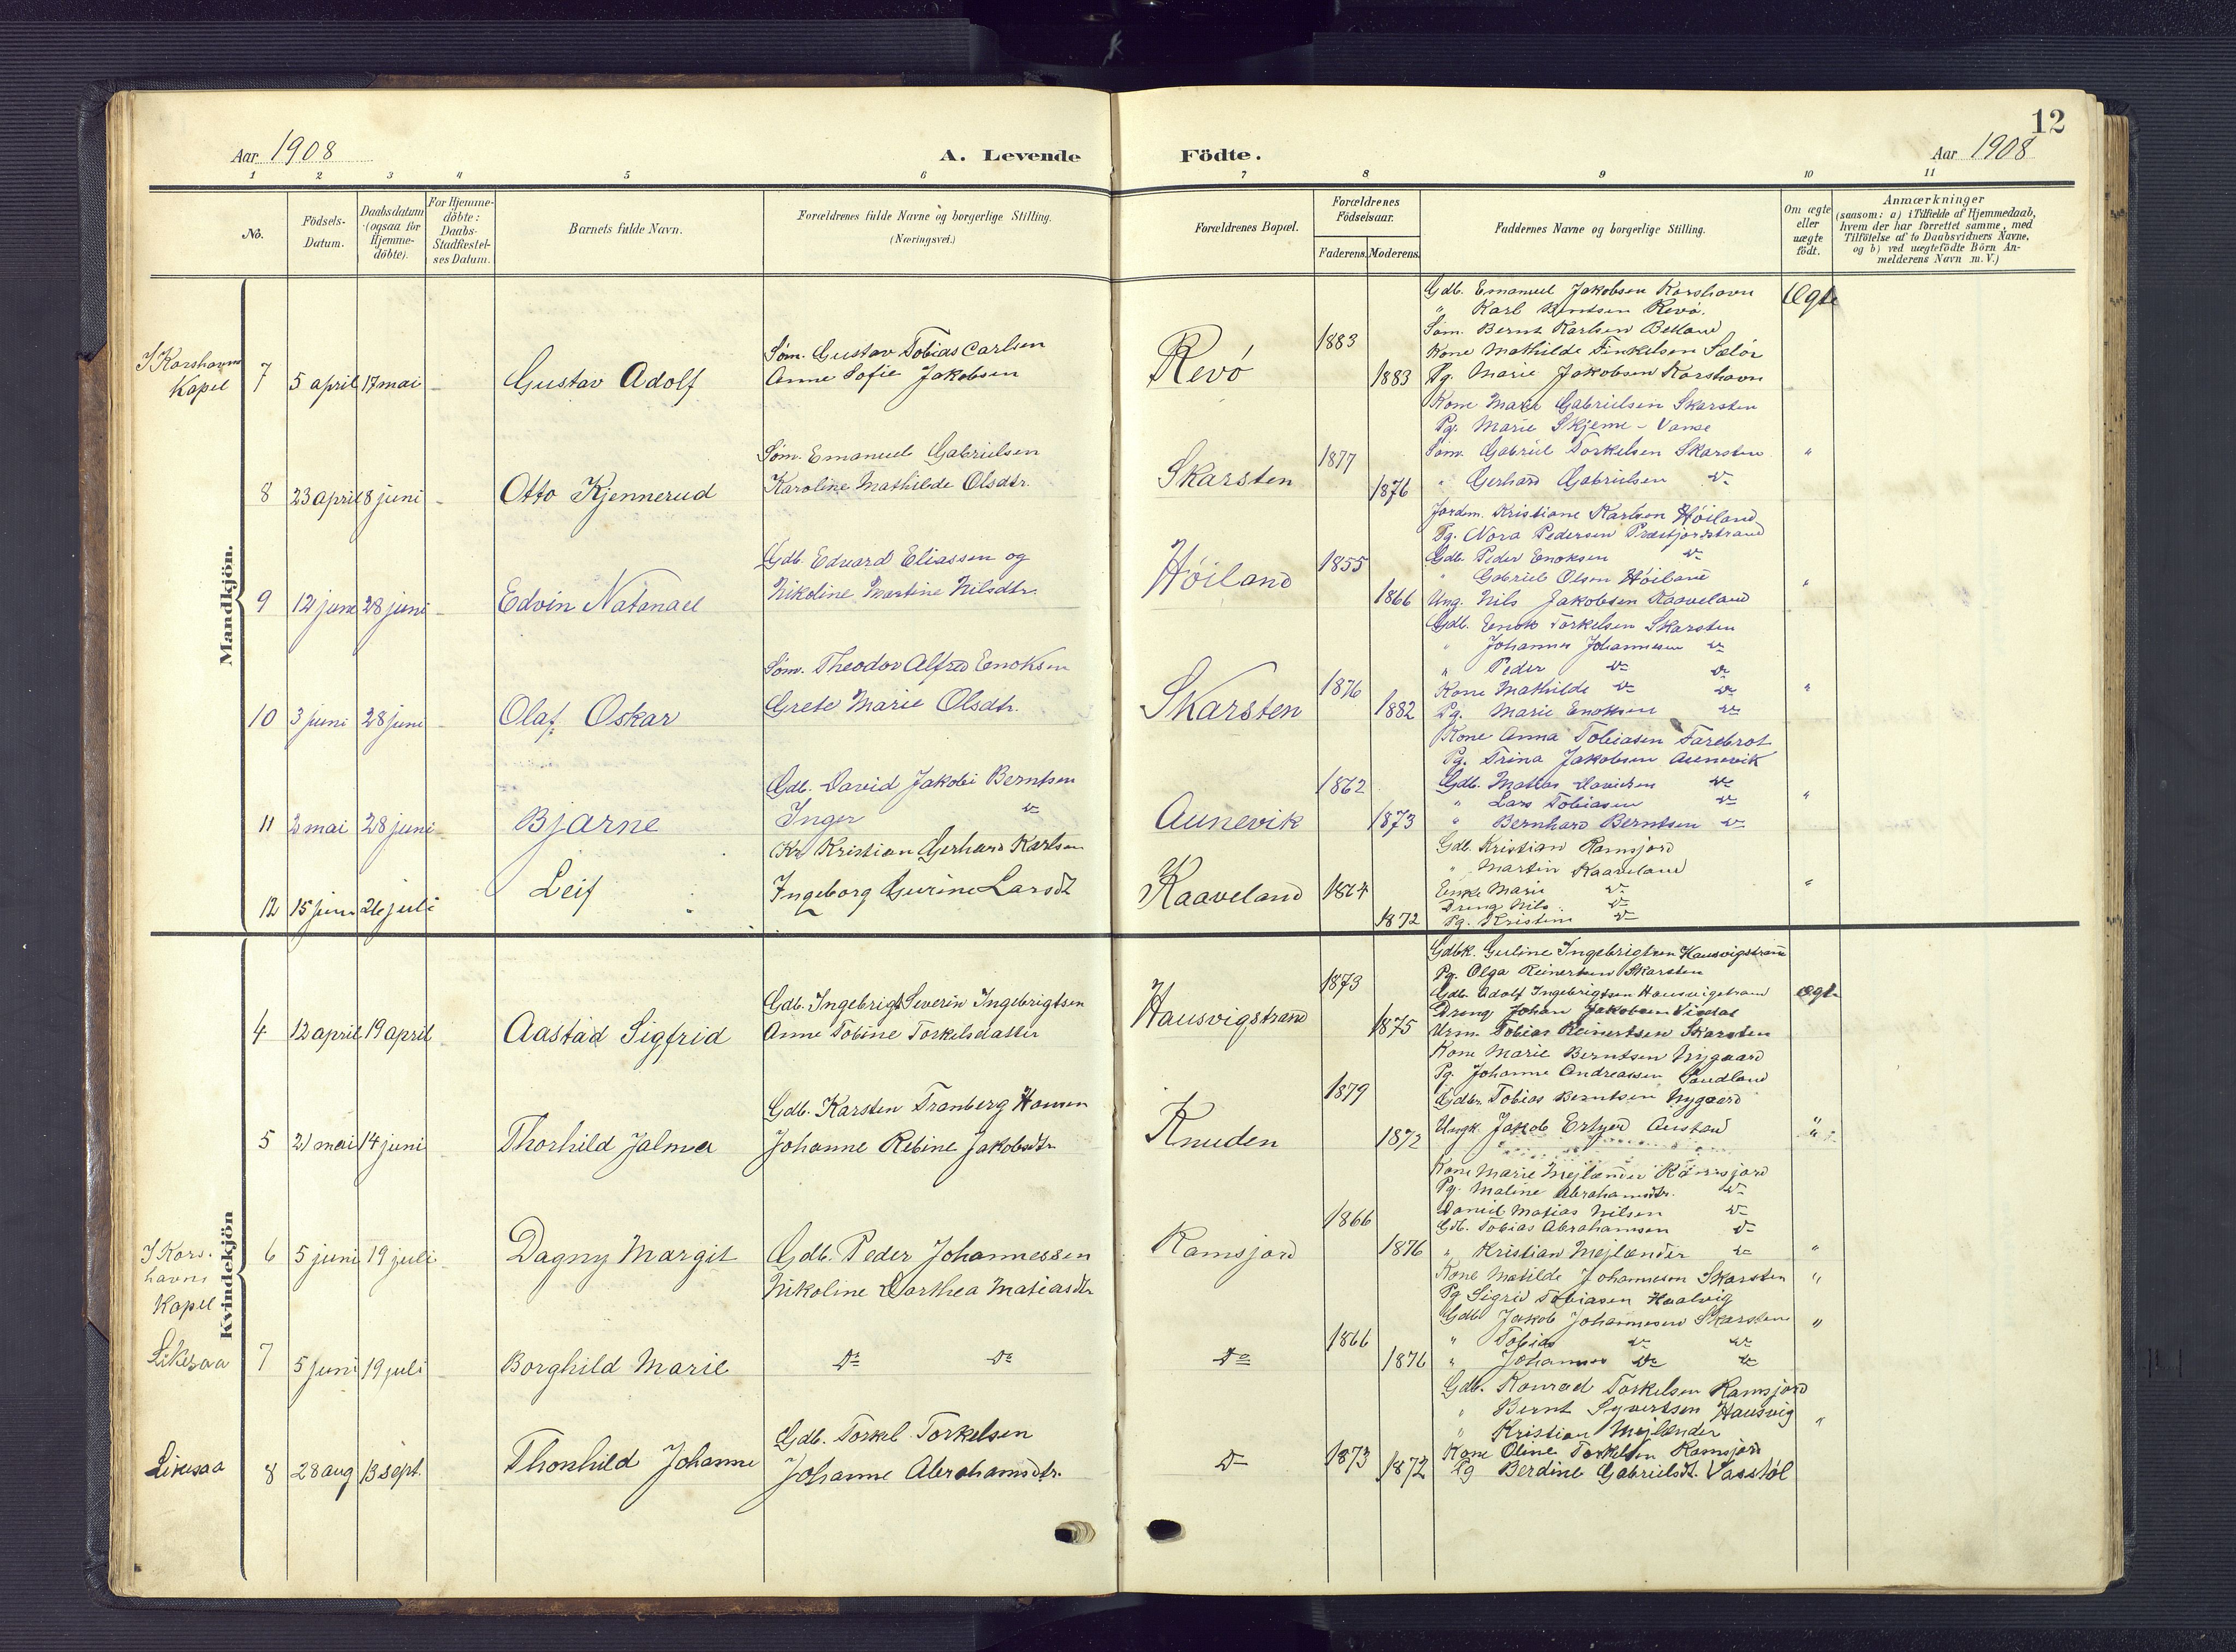 12
Aar 1908
A. Levende
Födte.
Aar 1908
1 2 3 4 5 6 7 8 9 10 11
No.
Födsels-
Datum.
Daabsdatum
(ogsaa for
Hjemme-
döbte).
For Hjemme-
döbte:
Daabs-
Stadfæstel-
ses Datum.
Barnets fulde Navn.
Forældrenes fulde Navne og borgerlige Stilling.
(Næringsvei.)
Forældrenes Bopæl.
Forældrenes
Födselsaar.
Faderens. Moderens.
Faddernes Navne og borgerlige Stilling.
Om ægte
eller
uægte
födt.
Anmærkninger
(saasom: a) i Tilfælde af Hjemmedaab,
hvem der har forrettet samme, med
Tilföielse af to Daabsvidners Navne,
og b) ved uægtefödte Börn An-
melderens Navn m. V.)
Mandkjön.
I Korshavns
Kapel
7 5 april 17 mai - Gustav Adolf
Søm. Gustav Tobias Carlsen
Anne Sofie Jakobsen
Revø
1883
1883
Gdb. Emanuel Jakobsen Korshavn
" Karl Berntsen Revø.
Søm. Bernt Karlsen
Kone Mathilde Tinkelsen Sælør
Pg. Marie Jakobsen Korshavn
Ægte
8 23 april 8 juni - Otto Kjennerud
Søm. Emanuel Gabrielsen
Karoline Mathilde Olsdtr.
Skarsten
1877
1876
Kone Marie Gabrielsen Skarsten
Pg. Marie Skjeme - Vanse
Søm. Gabriel Torkelsen Skarsten
" Gerhard Gabrielsen Do
Jordm. Kristiane Karlsen Høiland
"
9 12 juni 28 juni - Edvin Natanael
Gdb. Edvard Eliassen og
Nikoline Martine Nilsdtr.
Høiland
1855
1866
Pg. Nora Pedersen Præstjordstrand
Gdb. Peder Enoksen Do
" Gabriel Olsen Høiland
Ung. Nils Jakobsen Kaaveland
"
10 3 juni 28 juni - Olaf Oskar
Søm. Theodor Alfred Enoksen
Grete Marie Olsdtr.
Skarsten
1876
1882
Gdb. Enok Torkelsen Skarsten
" Johannes Johannesen Do
" Peder Do Do
Kone Mathilde Do Do
Pg. Marie Enoksen Do
"
11 2 mai 28 juni - Bjarne
Gdb. David Jakobi Berntsen
Inger Do
Aunevik
1862
1873
Kone Anna Tobiasen Farebrot
Pg. Trina Jakobsen Aunevik
Gdb. Mathias Davidsen Do
" Lars Tobiasen Do
" Bernhard Berntsen Do
"
12 15 juni 26 juli Leif
Kr. Kristian Gerhard Karlsen
Ingeborg Gurine Larsdt
Kaaveland
1864
1872
Gdb. Kristian Ramsjord
" Martin Kaaveland
Enke Marie Do
Dreng Nils Do
Pg. Kristine Do
"
Kvindekjön
4 12 april 19 april - Aastad Sigfrid
Gdb. Ingebrigt Severin Ingebrigtsen
Anne Tobine Torkelsdatter
Hausvigstrand
1873
1875
Gdbk. Guline Ingebrigtsen Hausvigstrand
Pg. Olga Reinertsen Skarsten
Gdb. Adolf Ingebrigtsen Hausvigstrand
Dreng Johan Jakobsen
Urm. Tobias Reinertsen Skarsten
Ægte
5 21 mai 14 juni - Thorhild Jalma
Gdb. Karsten Tranberg Hansen
Johanne Rebine Jakobsdtr.
Knuden
1879
1872
Kone Marie Berntsen Nygaard
Pg. Johanne Andreassen Sandland
Gdbr. Tobias Berntsen Nygaard
Ungk. Jakob Austad
"
I Kors-
havns
Kapel
6 5 juni 19 juli - Dagny Margit
Gdb. Peder Johannessen
Nikoline Dorthea Matiasdtr
Ramsjord
1866
1876
Kone Marie Mejlænder Ramsjord
Pg. Maline Abrahamsdtr. Do
Daniel Matias Nilsen Do
Gdb. Tobias Abrahamsen Do
" Kristian Mejlænder Do
"
Likesaa
7 5 juni 19 juli - Borghild Marie
Do Do
Do
1866
1876
Kone Matilde Johannesen Skarsten
Pg Sigrid Tobiasen Haalvig
Gdb Jakob Johannesen Skarsten
" Tobias Do Do
" Johannes Do Do
"
Likesaa
8 28 aug 13 sept. Thorhild Johanne
Gdb. Torkel Torkelsen
Johanne Abrahamsdtr.
Do
1873
1872
Gdb. Konrad Torkelsen Ramsjord
" Bernt Syvertsen Hausvig
" Kristian Mejlænder
Kone Oline Torkelsen Ramsjord
Pg Berdine Gabrielsdt. Vasstøl
"